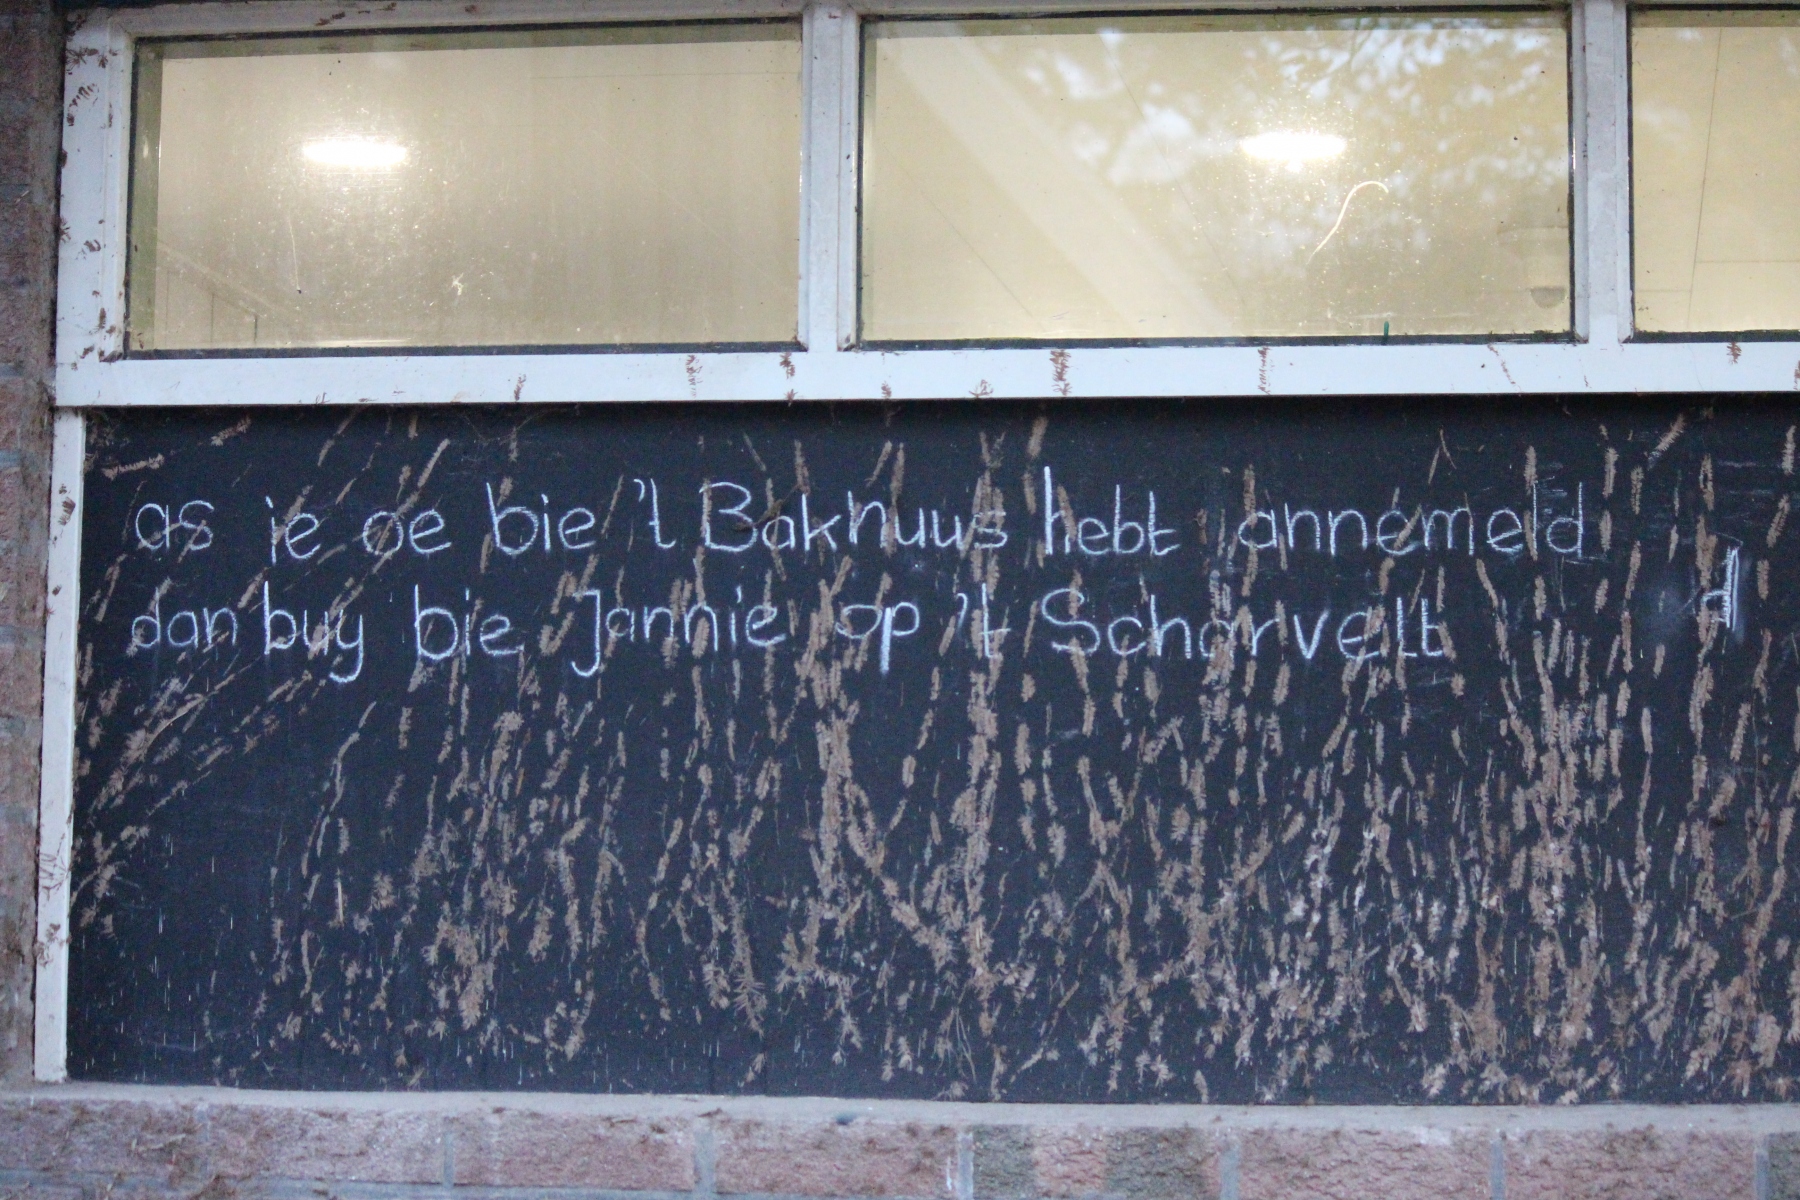 as ie oe bie 't Bakhuus hebt annemeld
dan buy bie Jannie op 't Scharvelt
d